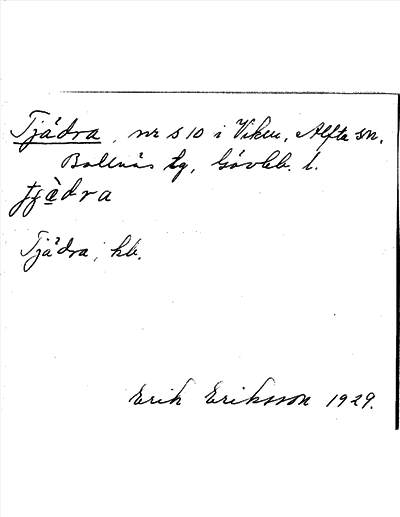 Tjädra, nr 510 i Viken, Alfta sn,
Bollnäs tg, Gävleb. l.
tjàdra
Tjädra, hb.
Erik Eriksson 1929.